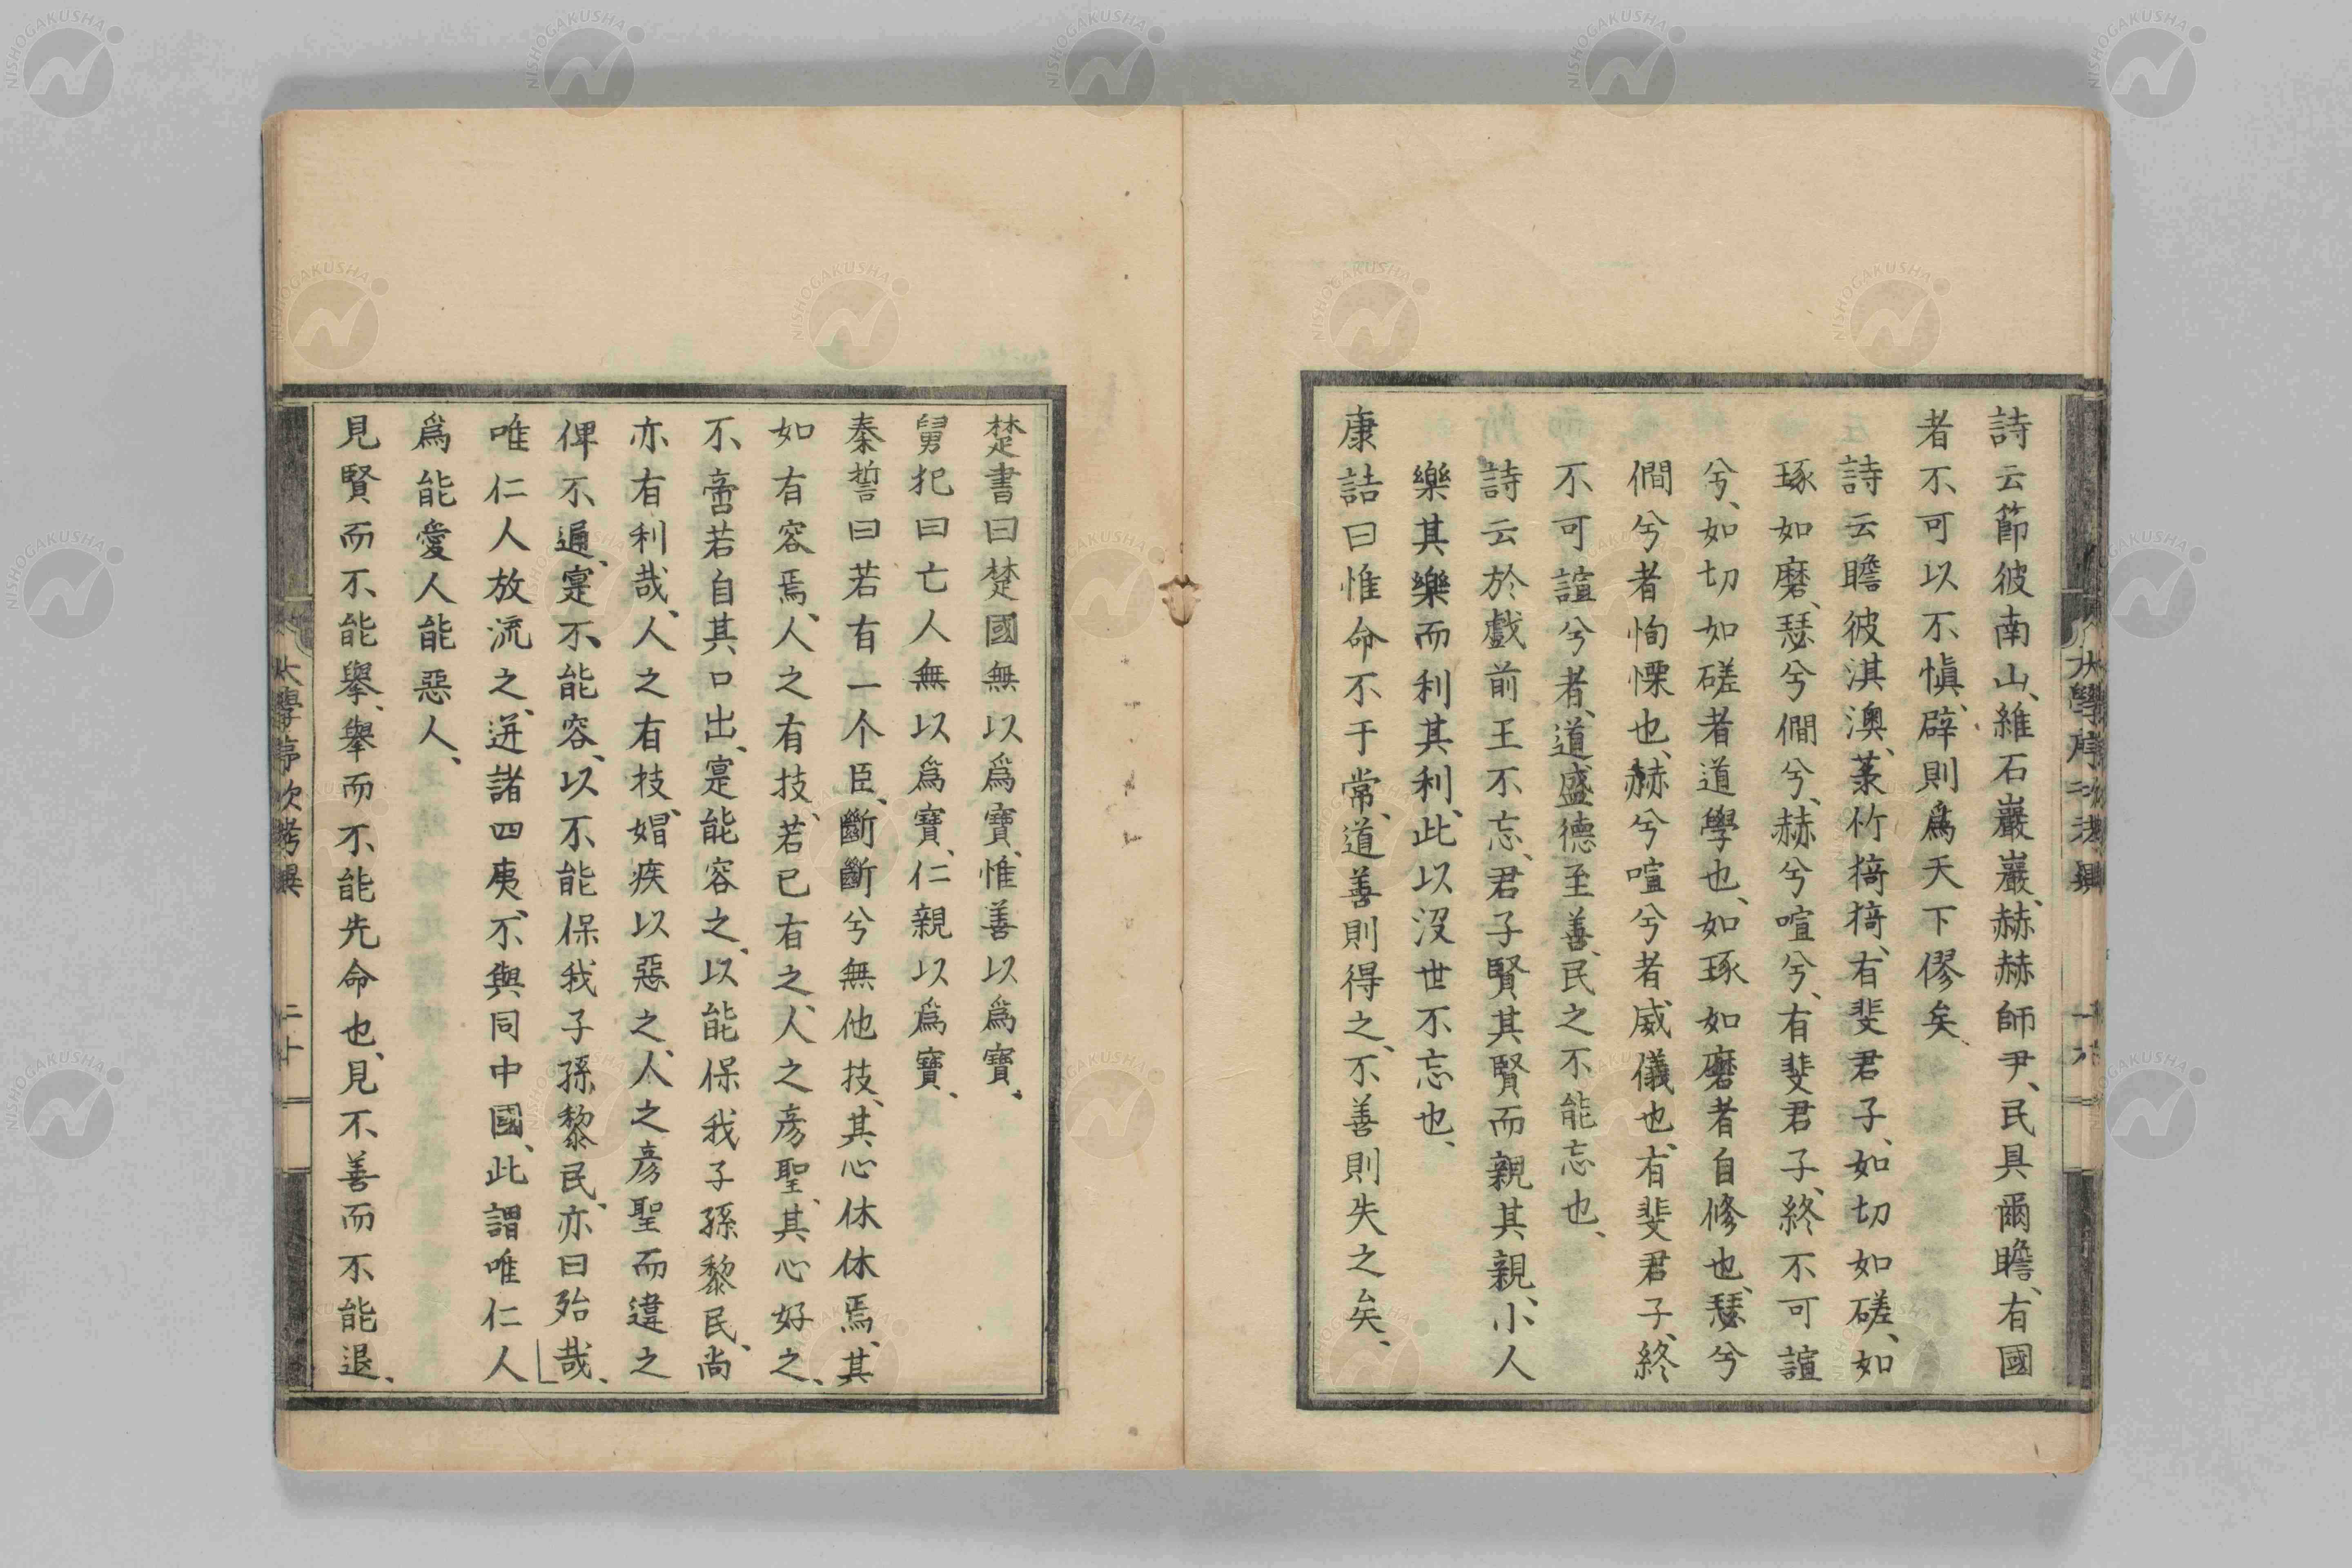 詩云節彼南山、維石巖巖、赫赫師尹、民具爾瞻、有國
者不可以不愼、辟則爲天下僇矣、
詩云瞻彼淇澳、菉竹猗猗、有斐君子、如切如磋、如
琢如磨、瑟兮僩兮、赫兮喧兮、有斐君子、終不可諠
兮、如切如磋者道學也、如琢如磨者自修也、瑟兮
僩兮者恂慄也、赫兮喧兮者威儀也、有斐君子、終
不可諠兮者、道盛德至善、民之不能忘也、
詩云於戲前王不忘、君子賢其賢而親其親、小人
樂其樂而利其利、此以沒世不忘也、
康誥曰惟命不于常、道善則得之、不善則失之矣、
楚書曰楚國無以爲寶、惟善以爲寶、
舅犯曰亡人無以爲寶、仁親以爲寶、
秦誓曰若有一个臣、斷斷兮無他技、其心休休焉、其
如有容焉、人之有技、若已有之、人之彦聖、其心好之、
不啻若自其口出、寔能容之、以能保我子孫黎民、尚
亦有利哉、人之有技、媢疾以惡之、人之彦聖而違之
俾不通、寔不能容、以不能保我子孫黎民、亦曰殆哉、
唯仁人放流之、迸諸四夷、不與同中國、此謂唯仁人
爲能愛人能惡人、
見賢而不能擧、擧而不能先、命也、見不善而不能退、
大學序次考異
二十
NISHOGAKUSHA